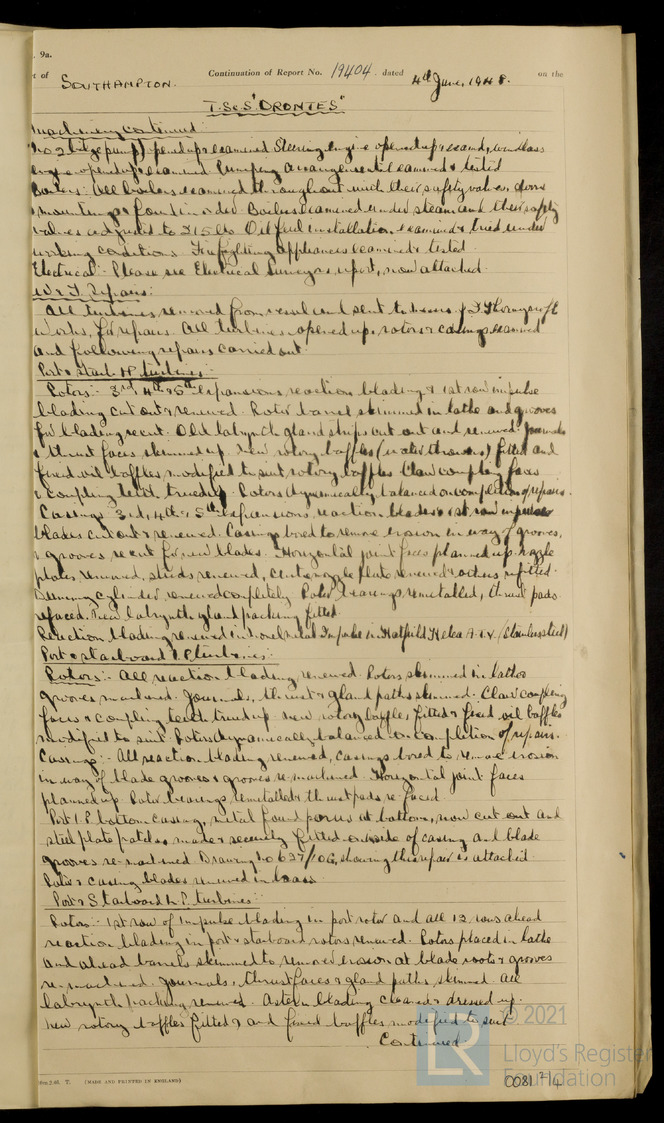 9a.
t of SOUTHAMPTON. Continuation of Report No. 19404. dated 4th June, 1948. on the
T.S.S "ORONTES"
Machinery continued
No 2 bilge pump) opened up & examined Steering engine opened up & examd, windlass
engine opened up & examined Pumping arrangements examined & tested
Boilers: All boilers examined throughout with their safety valves, doors
& mountings & found in order Boilers examined under steam and their safety
valves adjusted to 215 lbs Oil fuel installation examined & tried under
working conditions Firefighting appliances examined & tested
Electrical:- Please see Electrical Surveyors report, now attached.
W & T. Repairs:
All turbines removed from vessel and sent to Messrs J I Thornycroft
Works, for repairs. All turbines opened up, rotors & casings examined
and following repairs carried out
Port & Starb HP turbines:-
Rotors:- 3rd, 4th & 5th expansions reaction blading & 1st row impulse
blading cut out & renewed. Rotor barrel skimmed in lathe and grooves
for blading recut. Old labrynth gland strips cut out and renewed Journals
& thrust faces skimmed up. New rotory baffles (water throwers) fitted and
fixed oil baffles modified to suit rotory baffles Claw coupling faces
& coupling teeth trued up Rotors dynamically balanced on completion of repairs.
Casings 3rd, 4th & 5th expansions reaction blades & 1st row impulse
blades cut out & renewed. Casings bored to remove erosion in way of grooves,
& grooves recut for new blades. Horizontal joint faces planned up. Nozzle
plates removed, studs renewed, centre nozzle plate renewed & others refitted.
Dummy cylinder renewed completely Rotor bearings remetalled, thrust pads
refaced. New labrynth gland packing fitted.
Reaction blading renewed in Impulse in Hatfield (Stainless steel)
Port & starboard I.P. turbines:-
Rotors:- All reaction blading renewed. Rotors skimmed in lathe
grooves machined. Journals, thrust & gland paths skimmed. Claw coupling
faces & coupling teeth trued up New rotory baffles fitted & fixed oil baffles
modified to suit Rotors dynamically balanced on completion of repairs.
Casings:- All reaction blading renewed, casings bored to remove erosion
in way of blade grooves & grooves re-machined Horizontal joint faces
planned up Rotor bearings remetalled & thrust pads re-faced
Port I.P. bottom casing, metal found porous at bottom, now cut out and
steel plate patches made & securely fitted outside of casing and blade
grooves re-machined Drawing No 637/106, showing this repair is attached.
Rotor & casing blades renewed in brass
Port & Starboard L.P. turbines:-
Rotors:- 1st row of Impulse blading in port rotor and all 12 rows ahead
reaction blading in port & starboard rotors renewed. Rotors placed in lathe
and ahead barrels skimmed to remove erosion at blade roots & grooves
re-machined. Journals, thrust faces & gland paths skimmed All
labrynth packing renewed. Astern blading cleaned & dressed up.
New rotory baffles fitted & and fixed baffles modified to suit
Continued
(MADE AND PRINTED IN ENGLAND)
© 2021
LR
Lloyd's Register
Foundation
0081 2/4